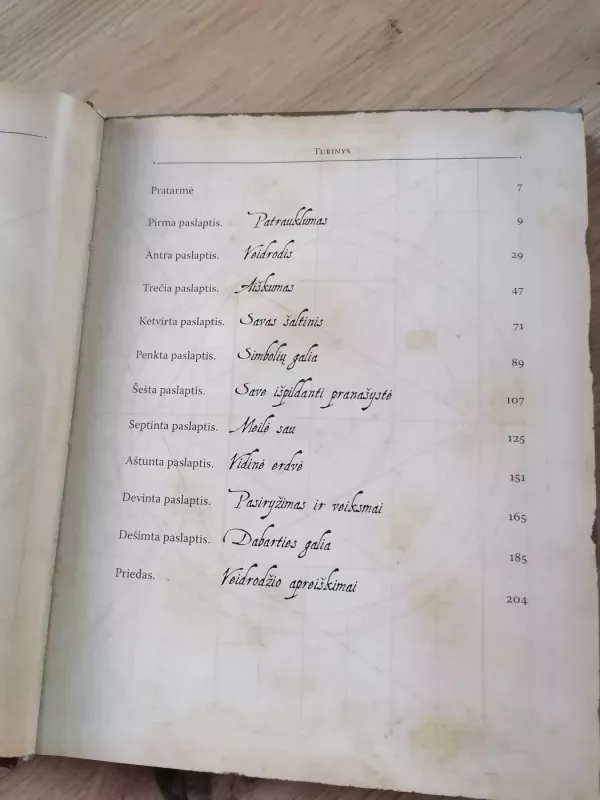 Turinys
Pratarmė 7
Pirma paslaptis. Patrauklumas 9
Antra paslaptis. Veidrodis 29
Trečia paslaptis. Aiškumas 47
Ketvirta paslaptis. Savas šaltinis 71
Penkta paslaptis. Simbolių galia 89
Šešta paslaptis. Save išpildanti pranašystė 107
Septinta paslaptis. Meilė sau 125
Aštunta paslaptis. Vidinė erdvė 151
Devinta paslaptis. Pasiryžimas ir veiksmai 165
Dešimta paslaptis. Dabarties galia 185
Priedas. Veidrodžio apreiškimai 204